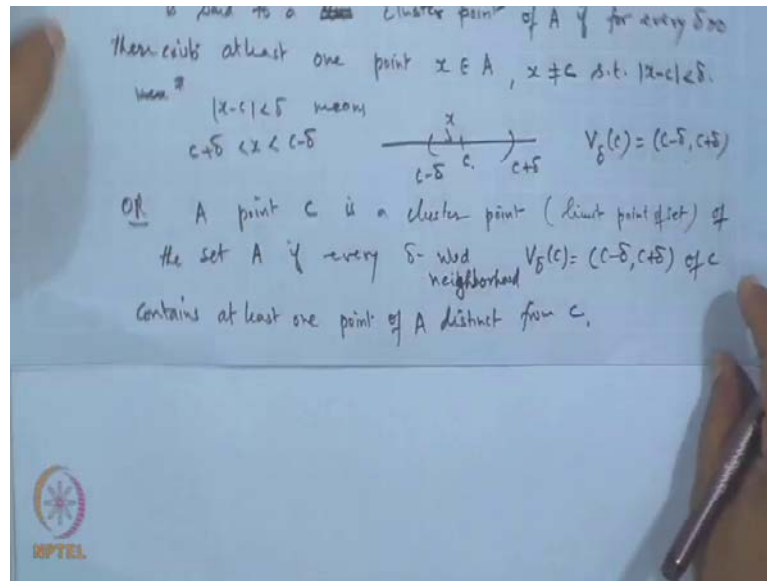 is said to a cluster point of A if for every δ>0
there exists atleast one point x ∈ A, x ≠ c s.t. |x-c|<δ.
|x-c|<δ means
x
c+δ <x < c-δ
c-δ c c+δ
V_δ(c) = (c-δ, c+δ)
OR A point c is a cluster point (limit point of set) of
the set A if every δ- nbd V_δ(c) = (c-δ, c+δ) of c
neighborhood
contains at least one point of A distinct from c.
NPTEL